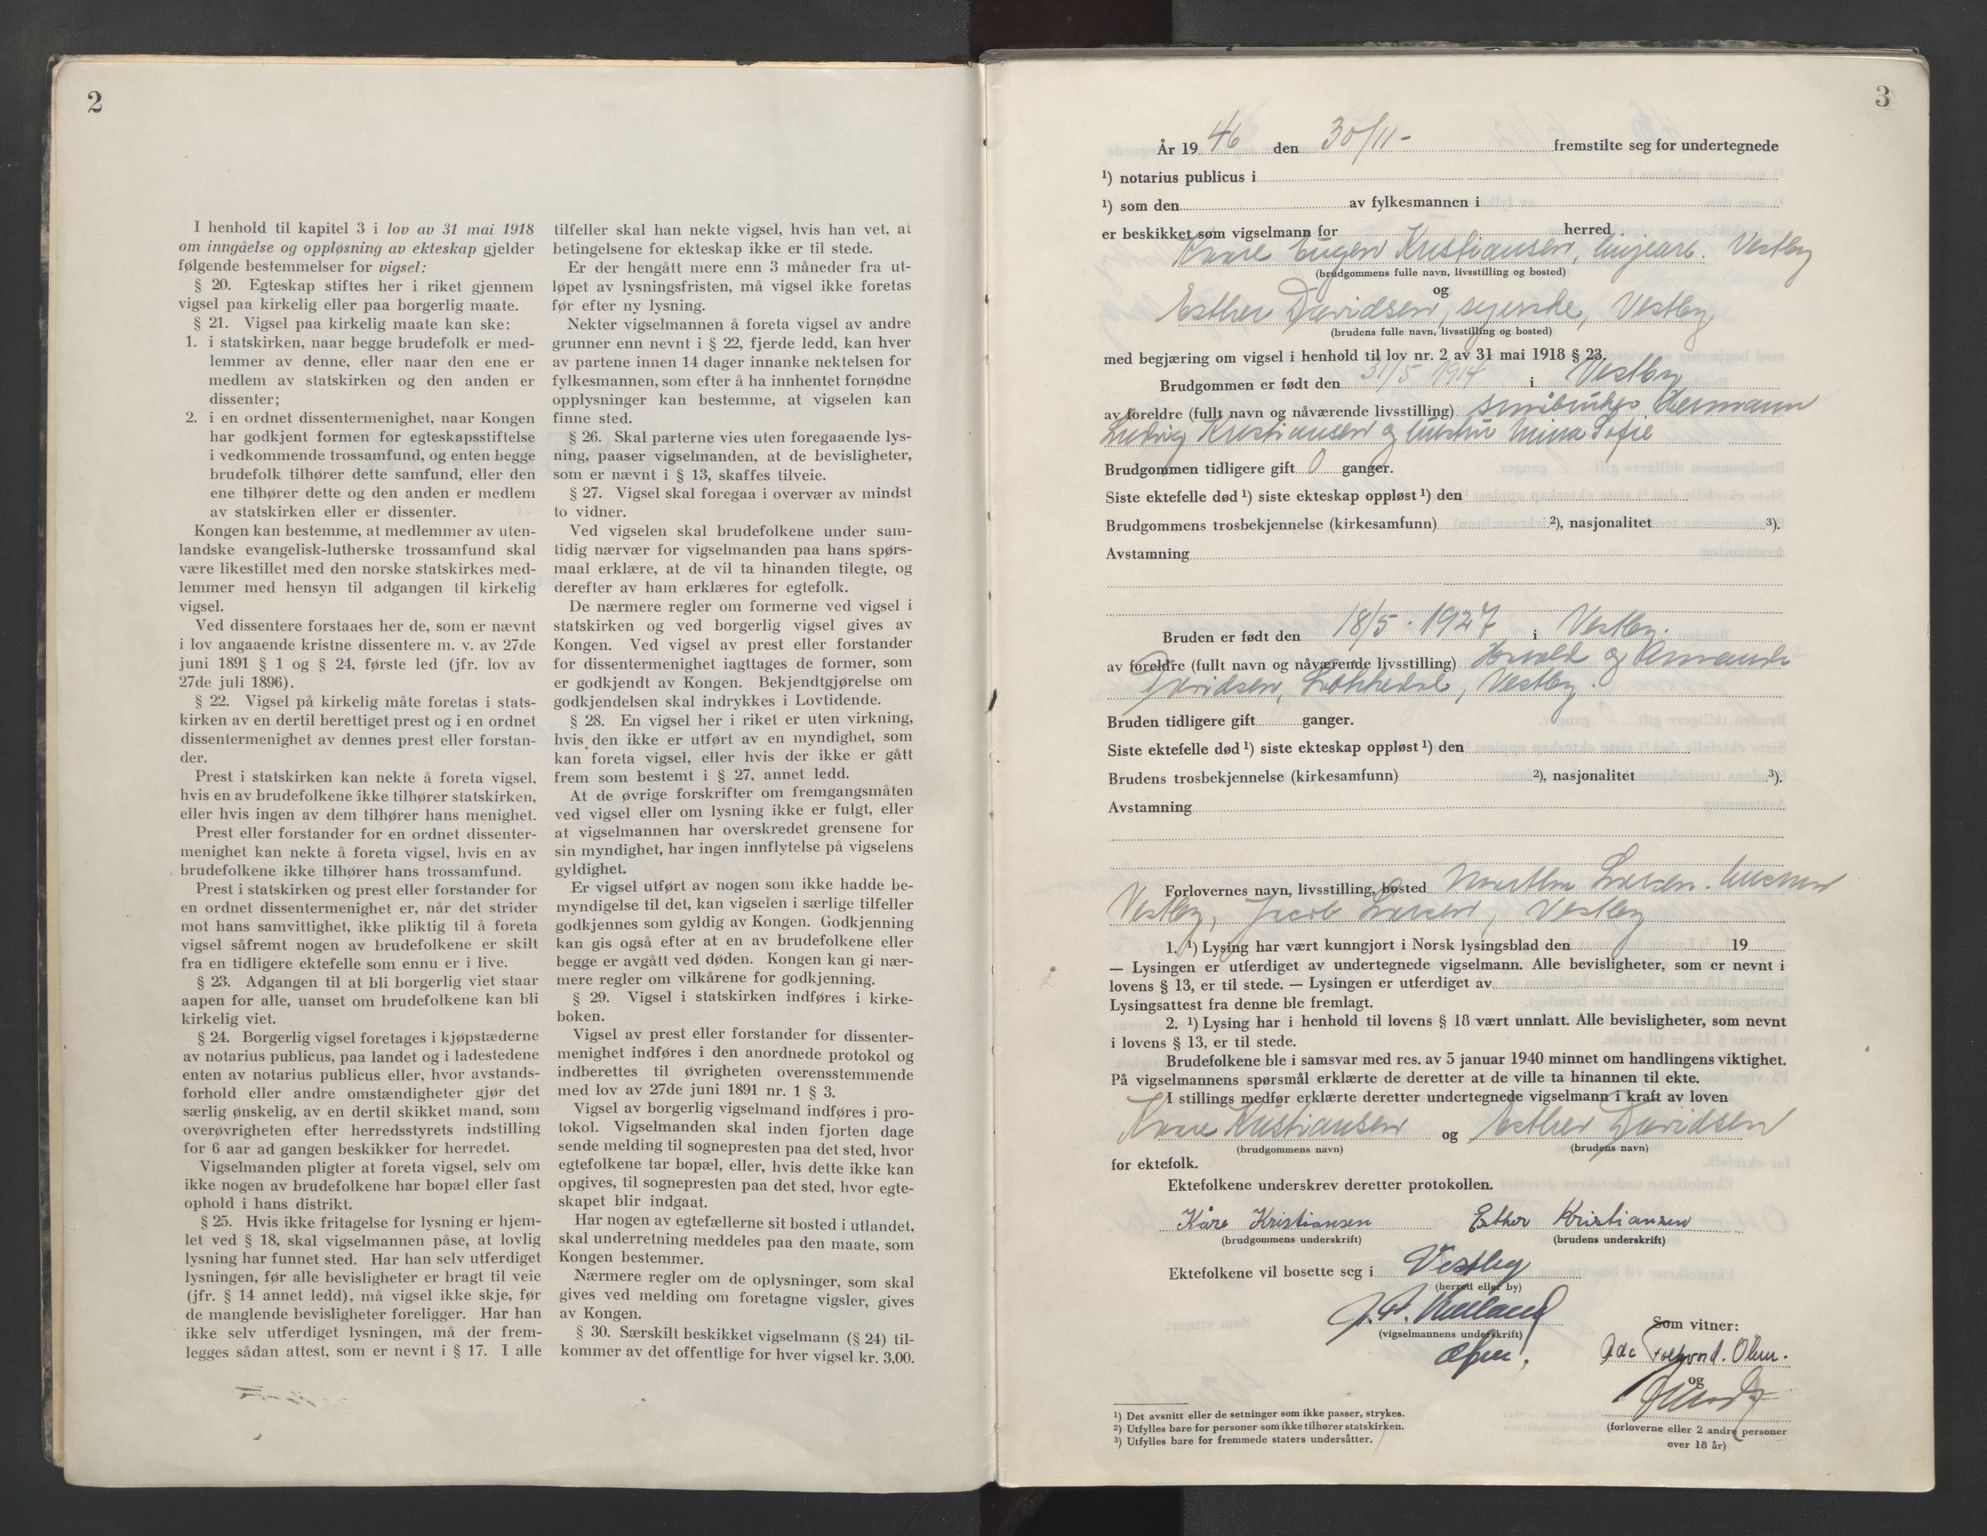 2
I henhold til kapitel 3 i lov av 31 mai 1918
om inngåelse og oppløsning av ekteskap gjelder
følgende bestemmelser for vigsel:
§ 20. Egteskap stiftes her i riket gjennem
vigsel paa kirkelig eller paa borgerlig maate.
§ 21. Vigsel paa kirkelig maate kan ske:
1. i statskirken, naar begge brudefolk er med-
lemmer av denne, eller naar den ene er
medlem av statskirken og den anden er
dissenter;
2. i en ordnet dissentermenighet, naar Kongen
har godkjent formen for egteskapsstiftelse
i vedkommende trossamfund, og enten begge
brudefolk tilhører dette samfund, eller den
ene tilhører dette og den anden er medlem
av statskirken eller er dissenter.
Kongen kan bestemme, at medlemmer av uten-
landske evangelisk-lutherske trossamfund skal
være likestillet med den norske statskirkes med-
lemmer med hensyn til adgangen til kirkelig
vigsel.
Ved dissentere forstaaes her de, som er nævnt
i lov angaaende kristne dissentere m. v. av 27de
juni 1891 § 1 og § 24, første led (jfr. lov av
27de juli 1896).
§ 22. Vigsel på kirkelig måte foretas i stats-
kirken av en dertil berettiget prest og i en ordnet
dissentermenighet av dennes prest eller forstan-
der.
Prest i statskirken kan nekte å foreta vigsel,
hvis en av brudefolkene ikke tilhører statskirken,
eller hvis ingen av dem tilhører hans menighet.
Prest eller forstander for en ordnet dissenter-
menighet kan nekte å foreta vigsel, hvis en av
brudefolkene ikke tilhører hans trossamfund.
Prest i statskirken og prest eller forstander for
en ordnet dissentermenighet er, når det strider
mot hans samvittighet, ikke pliktig til å foreta
vigsel såfremt nogen av brudefolkene er skilt
fra en tidligere ektefelle som ennu er i live.
§ 23. Adgangen til at bli borgerlig viet staar
aapen for alle, uanset om brudefolkene kan bli
kirkelig viet.
§ 24. Borgerlig vigsel foretages i kjøpstæderne
av notarius publicus, paa landet og i ladestedene
enten av notarius publicus eller, hvor avstands-
forhold eller andre omstændigheter gjør det
særlig ønskelig, av en dertil skikket mand, som
overøvrigheten efter herredsstyrets indstilling
for 6 aar ad gangen beskikker for herredet.
Vigselmanden pligter at foreta vigsel, selv om
ikke nogen av brudefolkene har bopæl eller fast
ophold i hans distrikt.
§ 25. Hvis ikke fritagelse for lysning er hjem-
let ved § 18, skal vigselmannen påse, at lovlig
lysning har funnet sted. Har han selv utferdiget
lysningen, før alle bevisligheter er bragt til veie
(jfr. § 14 annet ledd), må vigsel ikke skje, før
de manglende bevisligheter foreligger. Har han
ikke selv utferdiget lysningen, må der frem-
legges sådan attest, som er nevnt i § 17. I alle
tilfeller skal han nekte vigsel, hvis han vet, at
betingelsene for ekteskap ikke er til stede.
Er der hengått mere enn 3 måneder fra ut-
løpet av lysningsfristen, må vigsel ikke foretas
før efter ny lysning.
Nekter vigselmannen å foreta vigsel av andre
grunner enn nevnt i § 22, fjerde ledd, kan hver
av partene innen 14 dager innanke nektelsen for
fylkesmannen, som efter å ha innhentet fornødne
opplysninger kan bestemme, at vigselen kan
finne sted.
§ 26. Skal parterne vies uten foregaaende lys-
ning, paaser vigselmanden, at de bevisligheter,
som er nævnt i § 13, skaffes tilveie.
§ 27. Vigsel skal foregaa i overvær av mindst
to vidner.
Ved vigselen skal brudefolkene under sam-
tidig nærvær for vigselmanden paa hans spørs-
maal erklære, at de vil ta hinanden tilegte, og
derefter av ham erklæres for egtefolk.
De nærmere regler om formerne ved vigsel i
statskirken og ved borgerlig vigsel gives av
Kongen. Ved vigsel av prest eller forstander
for dissentermenighet iagttages de former, som
er godkjendt av Kongen. Bekjendtgjørelse om
godkjendelsen skal indrykkes i Lovtidende.
§ 28. En vigsel her i riket er uten virkning,
hvis den ikke er utført av en myndighet, som
kan foreta vigsel, eller hvis der ikke er gått
frem som bestemt i § 27, annet ledd.
At de øvrige forskrifter om fremgangsmåten
ved vigsel eller om lysning ikke er fulgt, eller
at vigselmannen har overskredet grensene for
sin myndighet, har ingen innflytelse på vigselens
gyldighet.
Er vigsel utført av nogen som ikke hadde be-
myndigelse til det, kan vigselen i særlige tilfeller
godkjennes som gyldig av Kongen. Godkjenning
kan gis også efter at en av brudefolkene eller
begge er avgått ved døden. Kongen kan gi nær-
mere regler om vilkårene for godkjenning.
§ 29. Vigsel i statskirken indføres i kirke-
boken.
Vigsel av prest eller forstander for dissenter-
menighet indføres i den anordnede protokol og
indberettes til øvrigheten overensstemmende
med lov av 27de juni 1891 nr. 1 § 3.
Vigsel av borgerlig vigselmand indføres i pro-
tokol. Vigselmanden skal inden fjorten dage
sende melding til sognepresten paa det sted, hvor
egtefolkene tar bopæl, eller, hvis dette ikke kan
opgives, til sognepresten paa det sted, hvor egte-
skapet blir indgaat.
Har nogen av egtefællerne sit bosted i utlandet,
skal underretning meddeles paa den maate, som
Kongen bestemmer.
Nærmere regler om de oplysninger, som skal
gives ved melding om foretagne vigsler, gives
av Kongen.
§ 30. Særskilt beskikket vigselmann (§ 24) til-
kommer av det offentlige for hver vigsel kr. 3,00.
3
År 19 46 den 30/11- fremstilte seg for undertegnede
¹) notarius publicus i
¹) som den av fylkesmannen i
er beskikket som vigselmann for herred
Kaare Eugen Kristiansen, linjearb. Vestby
(brudgommens fulle navn, livsstilling og bosted)
og
Esther Davidsen, syerske, Vestby
(brudens fulle navn, livsstilling og bosted)
med begjæring om vigsel i henhold til lov nr. 2 av 31 mai 1918 § 23.
Brudgommen er født den 31/5 1914 i Vestby
av foreldre (fullt navn og nåværende livsstilling) Hermann
Ludvig Kristiansen og hustru Mina Sofie
Brudgommen tidligere gift 0 ganger.
Siste ektefelle død¹) siste ekteskap oppløst¹) den
Brudgommens trosbekjennelse (kirkesamfunn) ²), nasjonalitet ³).
Avstamning
Bruden er født den 18/5 · 1927 i Vestby.
av foreldre (fullt navn og nåværende livsstilling) og Amanda
Davidsen, Vestby.
Bruden tidligere gift ganger.
Siste ektefelle død¹) siste ekteskap oppløst¹) den
Brudens trosbekjennelse (kirkesamfunn) ²), nasjonalitet ³).
Avstamning
Forlovernes navn, livsstilling, bosted Martha Larsen.
Vestby, Jacob Larsen, Vestby
1. ¹) Lysing har vært kunngjort i Norsk lysingsblad den 19
— Lysingen er utferdiget av undertegnede vigselmann. Alle bevisligheter, som er nevnt i
lovens § 13, er til stede. — Lysingen er utferdiget av
Lysingsattest fra denne ble fremlagt.
2. ¹) Lysing har i henhold til lovens § 18 vært unnlatt. Alle bevisligheter, som nevnt
i lovens § 13, er til stede.
Brudefolkene ble i samsvar med res. av 5 januar 1940 minnet om handlingens viktighet.
På vigselmannens spørsmål erklærte de deretter at de ville ta hinannen til ekte.
I stillings medfør erklærte deretter undertegnede vigselmann i kraft av loven
Kaare Kristiansen og Esther Davidsen
(brudgommens navn) (brudens navn)
for ektefolk.
Ektefolkene underskrev deretter protokollen.
Kåre Kristiansen Esther Kristiansen
(brudgommens underskrift) (brudens underskrift)
Ektefolkene vil bosette seg i Vestby
(herred eller by)
(vigselmannens underskrift)
Som vitner:
og
(forloverne eller 2 andre personer
over 18 år)
¹) Det avsnitt eller de setninger som ikke passer, strykes.
²) Utfylles bare for personer som ikke tilhører statskirken.
³) Utfylles bare for fremmede staters undersåtter.